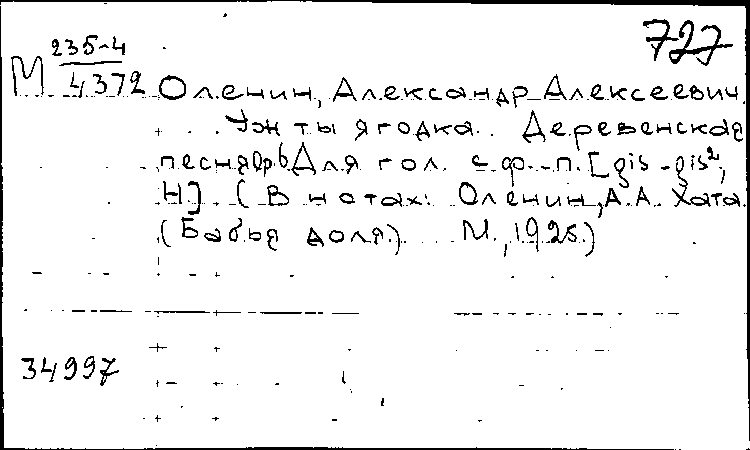 727
М 235-4
4372
Оленин, Александр Алексеевич.
Уж ты ягодка. Деревенская
песня. Ор. 6. Для гол. с ф.-п. [gis-gis²,
H] (В нотах: Оленин, А.А. Хата.
(Бабья доля). М., 1925.)
34997